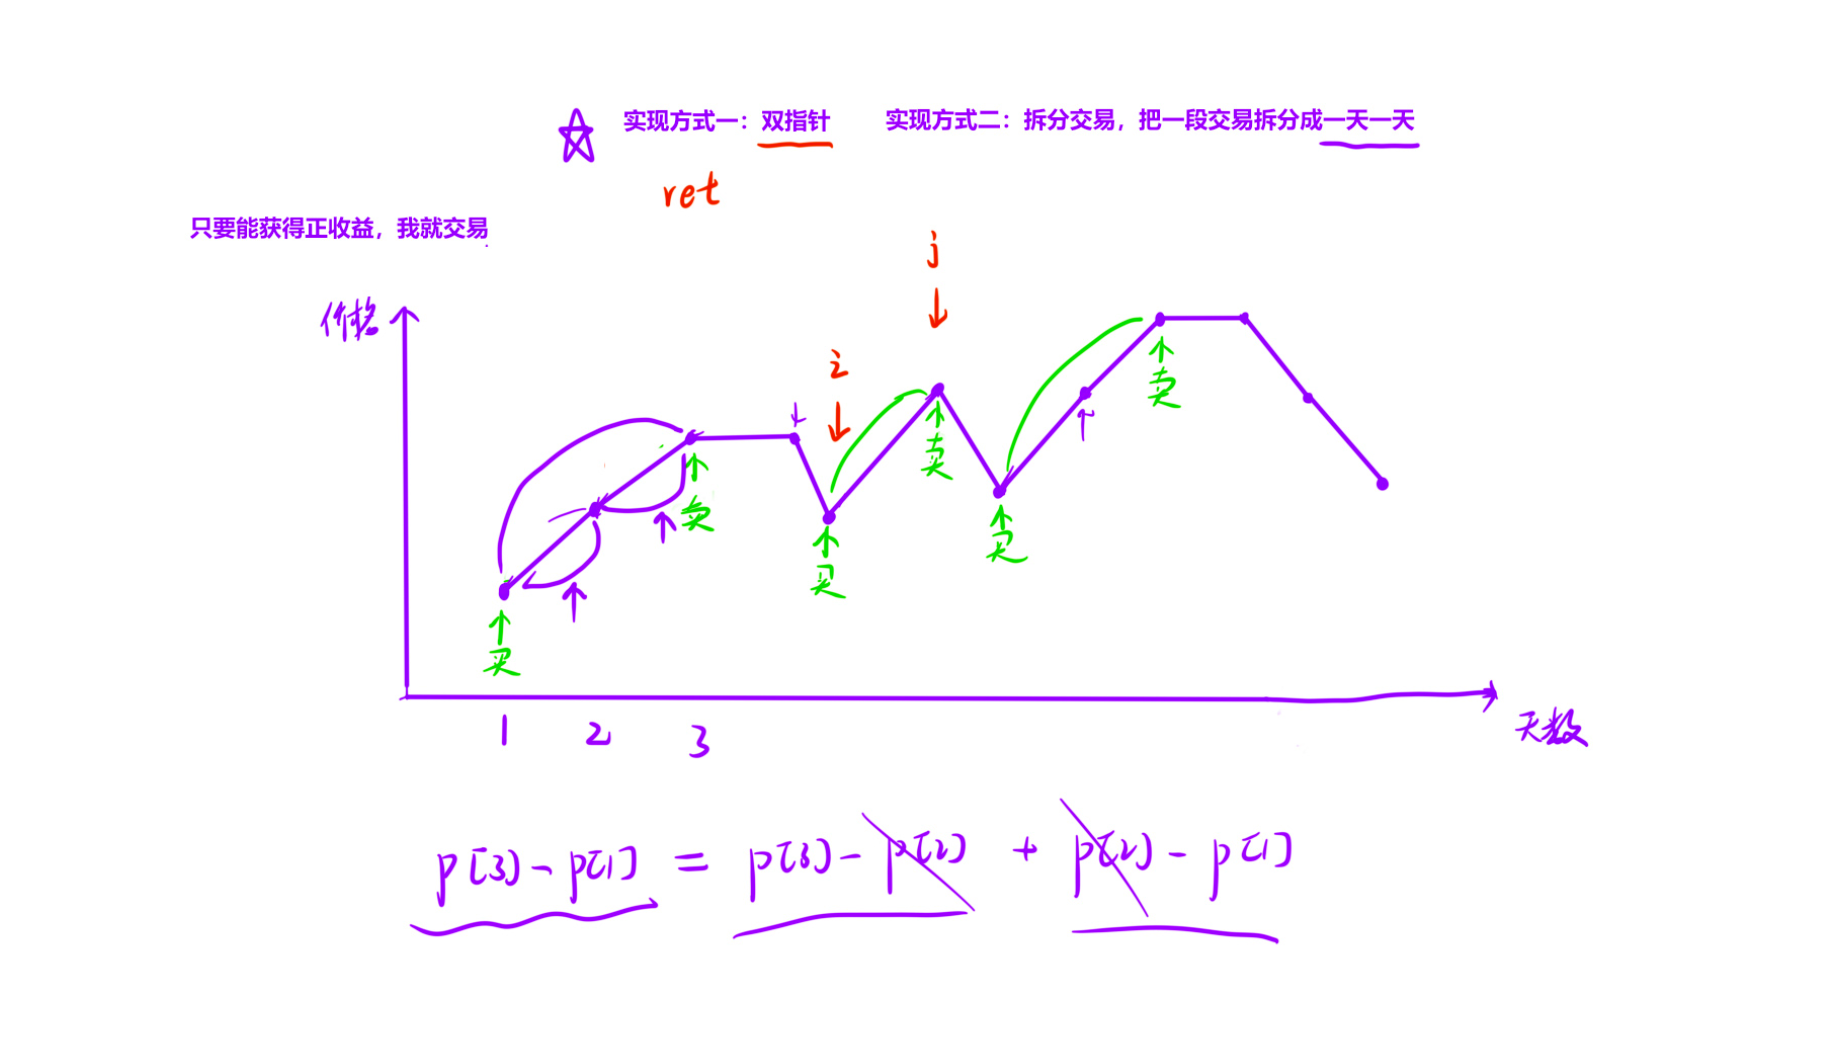 实现方式一：双指针 实现方式二：拆分交易，把一段交易拆分成一天一天
ret
只要能获得正收益，我就交易
j
价格
i
卖
卖
卖
买
买
买
1 2 3
天数
p[3]-p[1] = p[3]-p[2] + p[2]-p[1]